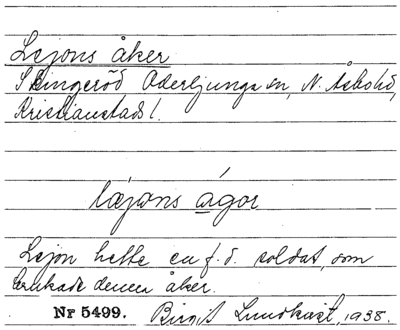 Lejons åker
Skingeröd Oderljunga sn, N. Åsbohd,
Kristianstads l.
læjons ågor
Lejon hette en f.d. soldat, som
brukade denna åker.
Nr 5499. Birgit Lundkvist, 1938.